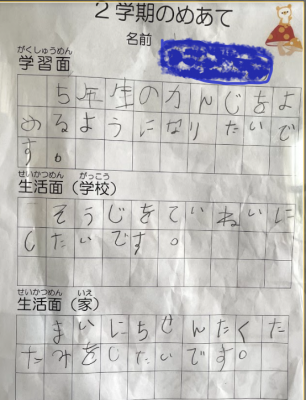 2学期のめあて
名前
がくしゅうめん
学習面
5年生のかんじをよ
めるようになりたいで
す。
せいかつめん がっこう
生活面（学校）
そうじをていねいに
したいです。
せいかつめん いえ
生活面（家）
まいにちせんたくた
たみをしたいです。